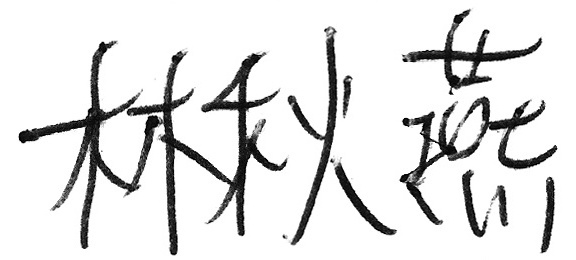 林秋燕